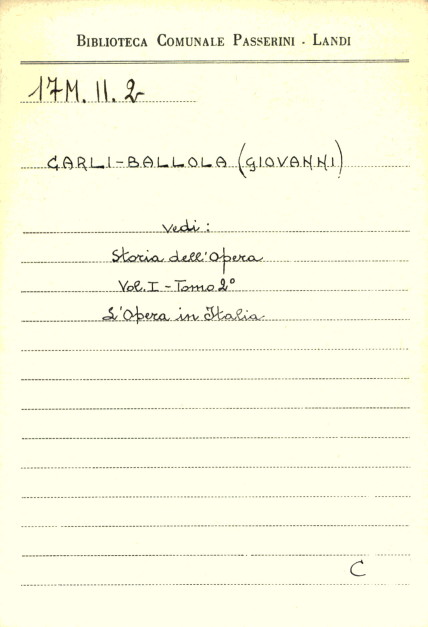 BIBLIOTECA COMUNALE PASSERINI - LANDI
17M. II. 2
CARLI-BALLOLA (GIOVANNI)
Vedi:
Storia dell'Opera
Vol. I - Tomo 2°
L'Opera in Italia
C